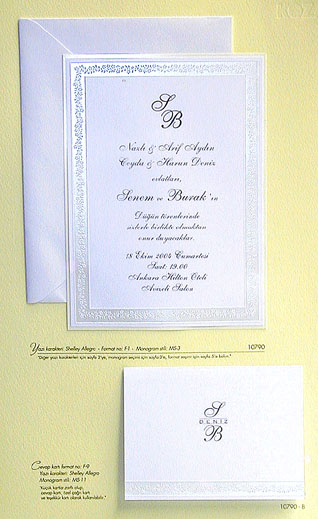 S
B
Nazlı & Arif Aydın
Ceyda & Harun Deniz
evlatları,
Senem ve Burak'ın
Düğün törenlerinde
sizlerle birlikte olmaktan
onur duyacaklar.
18 Ekim 2004 Cumartesi
Saat: 19.00
Ankara Hilton Oteli
Anıseli Salon
Yazı karakteri: Shelley Allegro - Format no: F-1 - Monogram stili: MS-3
10790
"Diğer yazı karakterleri için sayfa 2'ye, monogram seçimi için sayfa 3'e, format seçimi için sayfa 5'e bakın."
S
DENİZ
B
Cevap kartı format no: F-9
Yazı karakteri: Shelley Allegro
Monogram stili: MS-11
"Küçük kartlar zarflı olup,
cevap kartı, özel çağrı kartı
ve teşekkür kartı olarak kullanılabilir."
10790 - B